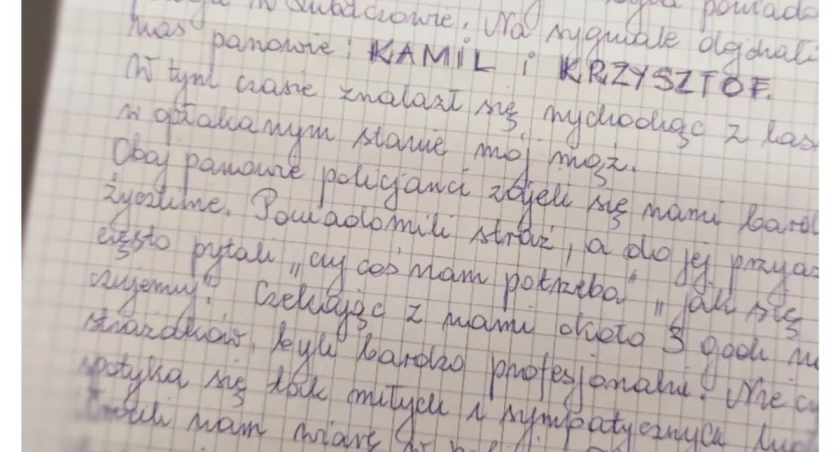 w Lubaczowie. Na sygnale dojechali
nas panowie: KAMIL i KRZYSZTOF.
W tym czasie znalazł się wychodząc z las
w opłakanym stanie mój mąż.
Obaj panowie policjanci zajęli się nami bard
życzliwie. Powiadomili straż, a do jej przyja
często pytali „czy coś nam potrzeba" „jak się
czujemy". Czekając z nami około 3 godz na
strażaków, byli bardzo profesjonalni. Nie
spotyka się tak miłych i sympatycznych
nam wiarę w